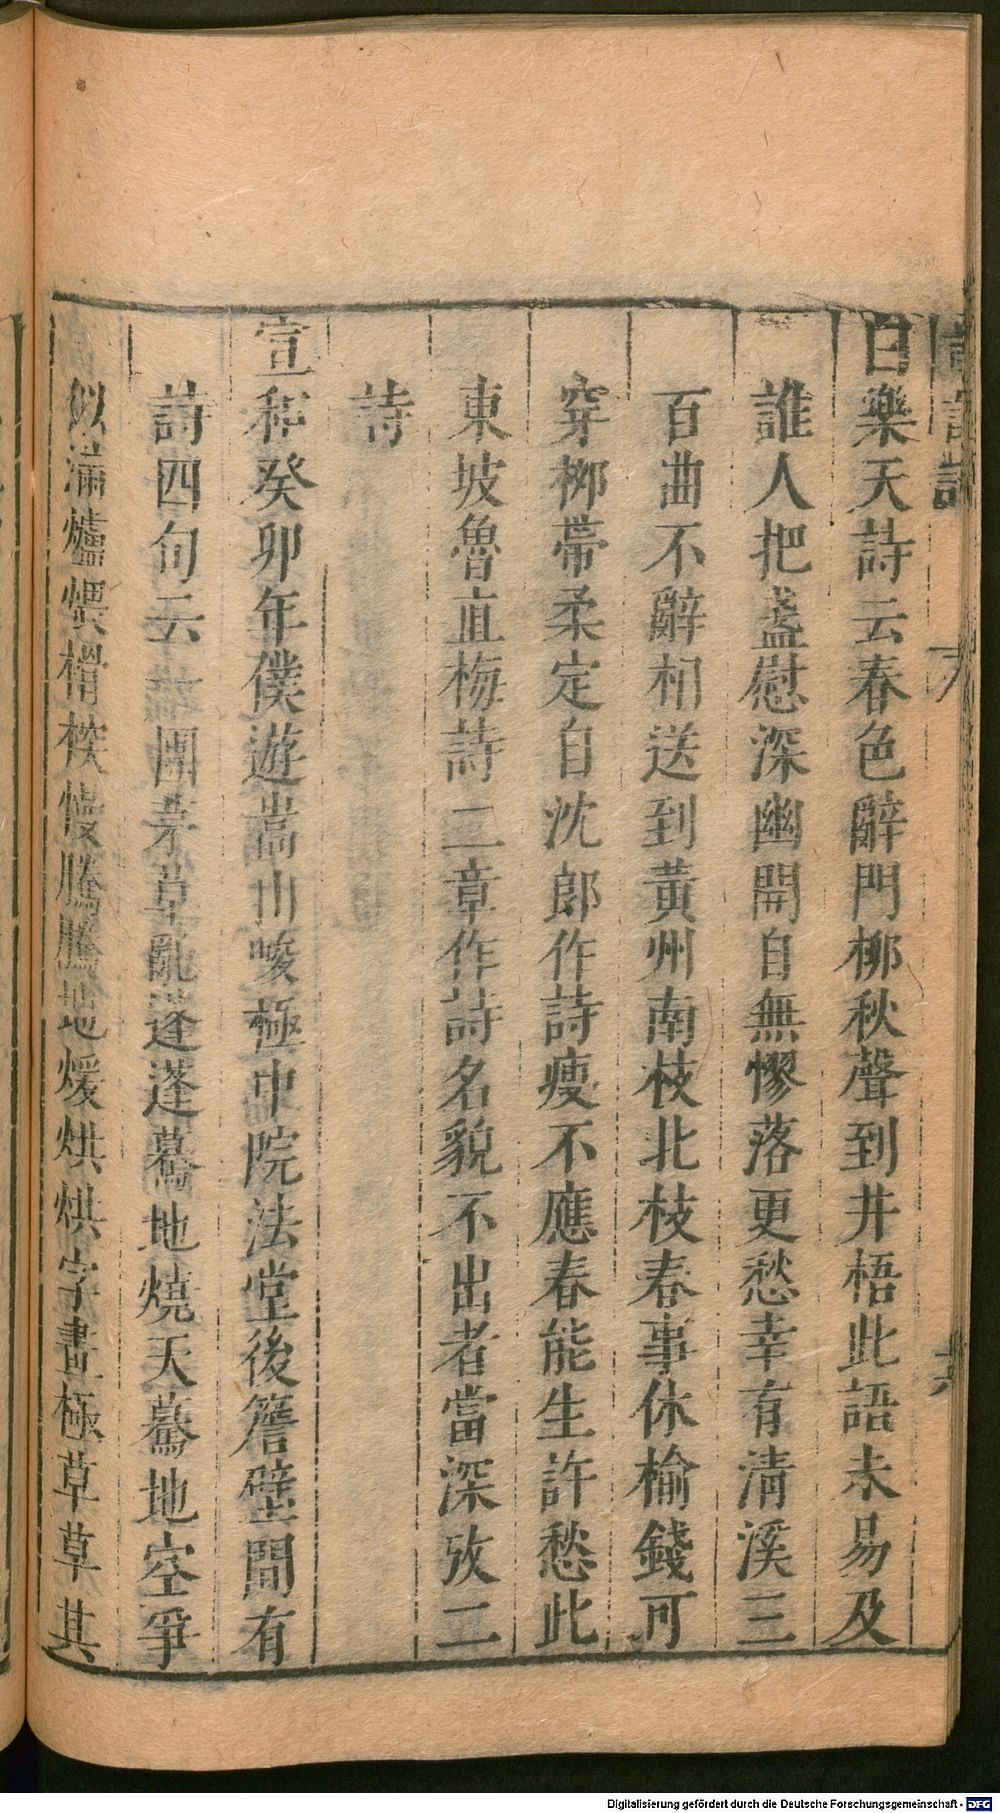 白樂天詩云春色辭門柳秋聲到井梧此語未易及
誰人把盞慰深幽開自無憀落更愁幸有清溪三
百曲不辭相送到黃州南枝北枝春事休榆錢可
穿柳帶柔定自沈郎作詩瘦不應春能生許愁此
東坡魯直梅詩二章作詩名貌不出者當深攷二
詩
宣和癸卯年僕遊嵩山峻極中院法堂後簷壁間有
詩四句云一團茅草亂蓬蓬驀地燒天驀地空爭
似滿爐煨榾柮慢騰騰地煖烘烘字畫極草草其
Digitalisierung gefördert durch die Deutsche Forschungsgemeinschaft - DFG